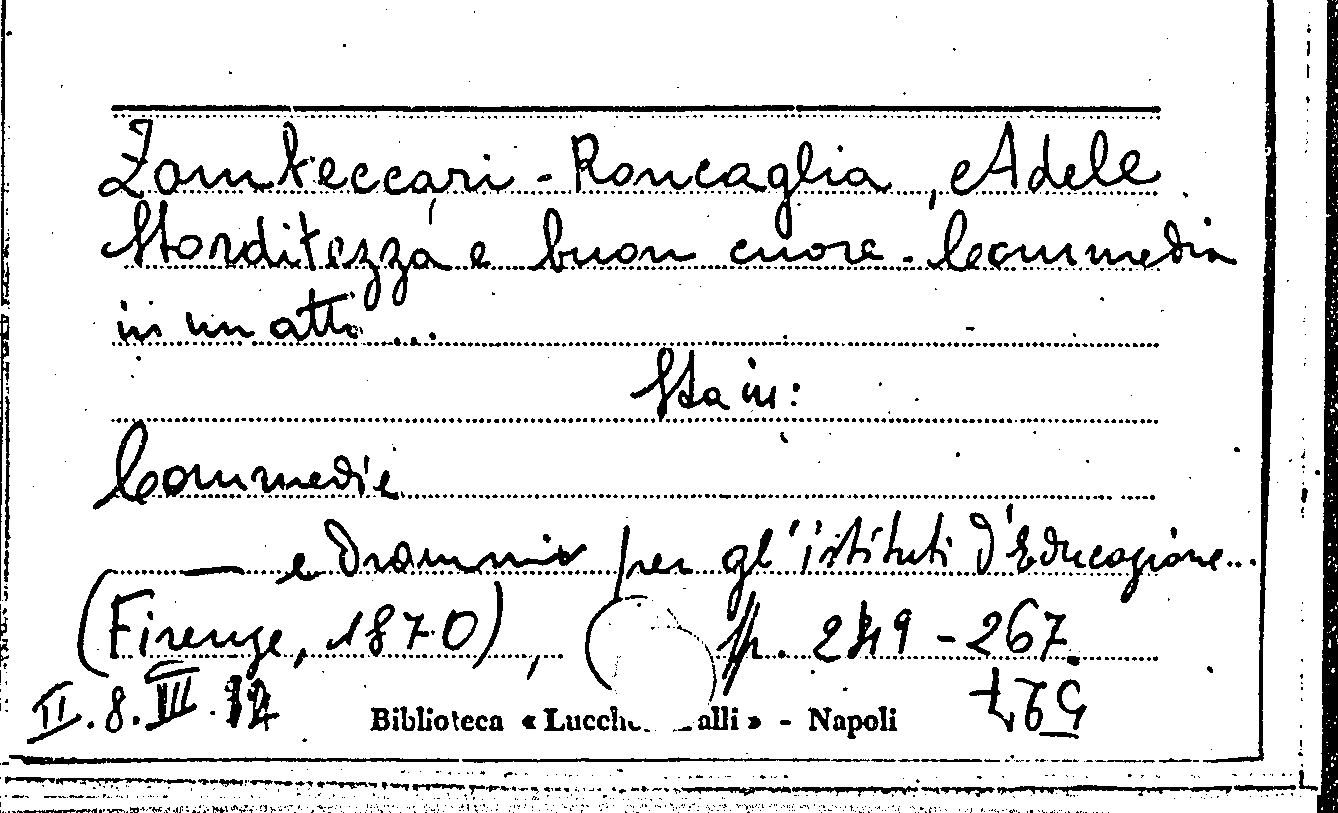 Zambeccari - Roncaglia, Adele
Storditezza e buon cuore. Commedia
in un atto ...
Sta in:
Commedie
— e drammi per gl'istituti d'Educazione...
(Firenze, 1870), pp. 249-267.
II.8.III.12
Biblioteca « Lucch alli » - Napoli